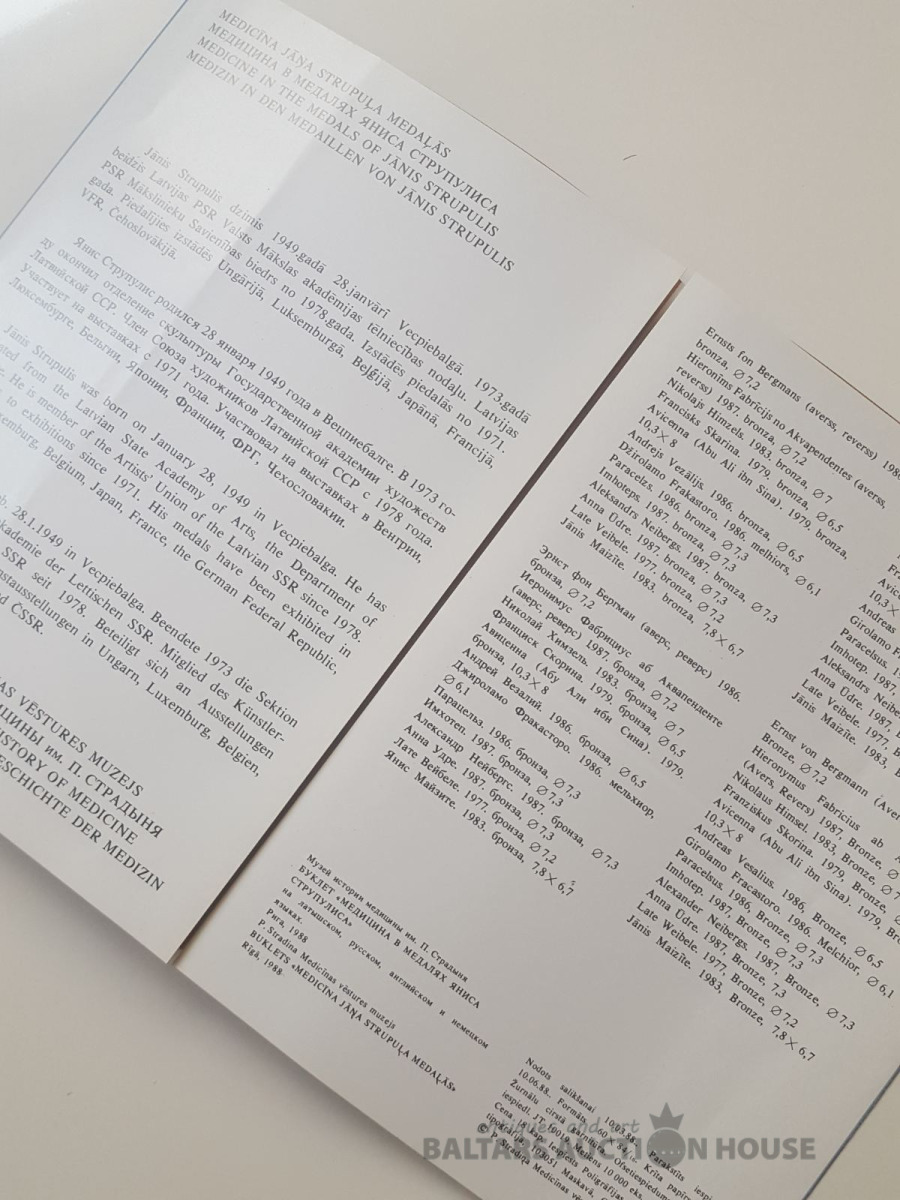 MEDICĪNA JĀŅA STRUPUĻA MEDAĻĀS
МЕДИЦИНА В МЕДАЛЯХ ЯНИСА СТРУПУЛИСА
MEDICINE IN THE MEDALS OF JĀNIS STRUPULIS
MEDIZIN IN DEN MEDAILLEN VON JĀNIS STRUPULIS
Jānis Strupulis dzimis 1949.gadā 28.janvārī Vecpiebalgā. 1973.gadā
beidzis Latvijas PSR Valsts Mākslas akadēmijas tēlniecības nodaļu. Latvijas
PSR Mākslinieku Savienības biedrs no 1978.gada. Izstādēs piedalās no 1971.
gada. Piedalījies izstādēs Ungārijā, Luksemburgā, Beļģijā, Japānā, Francijā,
VFR, Čehoslovākijā.
Янис Струпулис родился 28 января 1949 года в Вецпиебалге. В 1973 го-
ду окончил отделение скульптуры Государственной академии художеств
Латвийской ССР. Член Союза художников Латвийской ССР с 1978 года.
Участвует на выставках с 1971 года. Участвовал на выставках в Венгрии,
Люксембурге, Бельгии, Японии, Франции, ФРГ, Чехословакии.
Jānis Strupulis was born on January 28, 1949 in Vecpiebalga. He has
from the Latvian State Academy of Arts, the Department of
He is member of the Artists' Union of the Latvian SSR since 1978.
to exhibitions since 1971. His medals have been exhibited in
Belgium, Japan, France, the German Federal Republic,
28.1.1949 in Vecpiebalga. Beendete 1973 die Sektion
der Lettischen SSR. Mitglied des Künstler-
SSR seit 1978. Beteiligt sich an Ausstellungen
in Ungarn, Luxemburg, Belgien,
ČSSR.
VĒSTURES MUZEJS
им. П. СТРАДЫНЯ
HISTORY OF MEDICINE
DER MEDIZIN
Ernsts fon Bergmans (averss, reverss) 1986
bronza, ∅ 7,2
Hieronīms Fabrīcijs no Akvapendentes (averss,
reverss) 1987. bronza, ∅ 7,2
Nikolajs Himzels. 1983, bronza, ∅ 7
Francisks Skarina. 1979, bronza, ∅ 6,5
Avicenna (Abu Ali ibn Sina). 1979, bronza,
10,3 × 8
Andrejs Vezālijs. 1986, bronza, ∅ 6,5
Džirolamo Frakastoro. 1986, melhiors, ∅ 6,1
Paracelzs. 1986, bronza, ∅ 7,3
Imhoteps. 1987. bronza, ∅ 7,3
Aleksandrs Neibergs. 1987. bronza, ∅ 7,3
Anna Ūdre. 1987, bronza, ∅ 7,3
Late Veibele. 1977, bronza, ∅ 7,2
Jānis Maizīte. 1983, bronza, 7,8 × 6,7
Эрнст фон Бергман (аверс, реверс) 1986.
бронза, ∅ 7,2
Иеронимус Фабрициус аб Аквапенденте
(аверс, реверс) 1987, бронза ∅ 7,2
Николай Химзель. 1983, бронза, ∅ 7
Франциск Скорина. 1979, бронза, ∅ 6,5
Авиценна (Абу Али ибн Сина). 1979,
бронза, 10,3 × 8
Андрей Везалий. 1986, бронза, ∅ 6,5
Джироламо Фракасторо. 1986, мельхиор,
∅ 6,1
Парацельз. 1986, бронза, ∅ 7,3
Имхотеп. 1987, бронза, ∅ 7,3
Александр Нейбергс. 1987 бронза, ∅ 7,3
Анна Удре. 1987, бронза, ∅ 7,3
Лате Вейбеле. 1977, бронза, ∅ 7,2
Янис Майзите. 1983. бронза, 7,8 × 6,7
Музей истории медицины им. П. Страдыня
БУКЛЕТ «МЕДИЦИНА В МЕДАЛЯХ ЯНИСА
СТРУПУЛИСА»
на латышском, русском, английском и немецком
языках.
Рига, 1988
P. Stradiņa Medicīnas vēstures muzejs
BUKLETS «MEDICĪNA JĀŅA STRUPUĻA MEDAĻĀS»
Rīgā, 1988.
10,3 ×
Andreas
Girolamo
Paracelsus.
Imhotep. 1987,
Aleksandrs
Anna Ūdre. 1987,
Late Veibele. 1977,
Jānis Maizīte. 1983,
Ernst von Bergmann
Bronze, ∅ 7,2
Hieronymus Fabricius ab
(Avers, Revers) 1987, Bronze,
Nikolaus Himsel. 1983, Bronze,
Franziskus Skorina. 1979, Bronze,
Avicenna (Abu Ali ibn Sina). 1979,
10,3 × 8
Andreas Vesalius. 1986, Bronze, ∅ 6,5
Girolamo Fracastoro. 1986, Melchior, ∅ 6,1
Paracelsus. 1986, Bronze, ∅ 7,3
Imhotep. 1987, Bronze, ∅ 7,3
Alexander Neibergs. 1987, Bronze, ∅ 7,3
Anna Ūdre. 1987, Bronze, 7,3
Late Weibele. 1977, Bronze, ∅ 7,2
Jānis Maizīte. 1983, Bronze, 7,8 × 6,7
Nodots salikšanai 10.03.88. Parakstīts
10.06.88. Formāts
antique and art
BALTARS AUCTION HOUSE